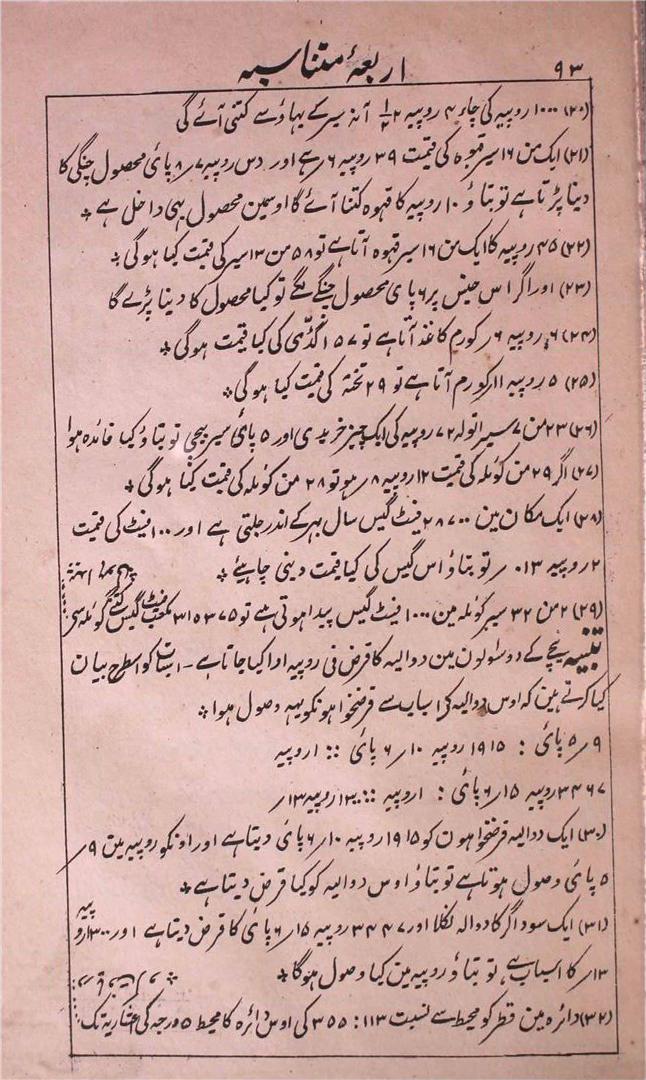 ۹۳ اربعۂ متناسبہ
(۲۰) ۱۰۰۰ روپیہ کی چاء ۴ روپیہ ۲ ۱/۲ آنہ سیر کے بہاؤ سے کتنی آئے گی
(۲۱) ایک من ۱۶ سیر قہوہ کی قیمت ۳۹ روپیہ ۶؍ ہے اور دس روپیہ ۷؍۸ پائی محصول چنگی کا
دینا پڑتا ہے تو بتاؤ ۱۰ روپیہ کا قہوہ کتنا آئے گا اوسمین محصول بہی داخل ہے ٭
(۲۲) ۴۵ روپیہ کا ایک من ۱۶ سیر قہوہ آتا ہے تو ۵۸ من ۱۳ سیر کی قیمت کیا ہوگی ٭
(۲۳) اور اگر اس جنس پر ۶ پائی محصول چنگی لگے تو کیا محصول کا دینا پڑے گا
(۲۴) ۶ روپیہ ۶؍ کو رم کاغذ آتا ہے تو ۱۵۷ گڈی کی کیا قیمت ہوگی ٭
(۲۵) ۵ روپیہ ۱۱؍ کو رم آتا ہے تو ۲۹ تختہ کی قیمت کیا ہوگی ٭
(۲۶) ۲۳ من ۷ سیر اتولہ ۷۲ روپیہ کی ایک چیز خریدی اور ۵ پائی سیر بیچی تو بتاؤ کیا فائدہ ہوا
(۲۷) اگر ۲۹ من کوئلہ کی قیمت ۱۲ روپیہ ۸؍ ہو تو ۲۸ من کوئلہ کی قیمت کیا ہوگی ٭
(۲۸) ایک مکان مین ۲۸۷۰۰ فیٹ گیس سال بہر کے اندر جلتی ہے اور ۱۰۰ فیٹ کی قیمت
۲ روپیہ ۱۳؍ تو بتاؤ اس گیس کی کیا قیمت دینی چاہیئے ٭
(۲۹) ۲ من ۳۲ سیر کوئلہ مین ۱۰۰۰ فیٹ گیس پیدا ہوتی ہے تو ۳۱۵۳۷۵ مکعب فیٹ گیس کتنے کوئلہ سی
تنبیہ نیچے کے دو سوالون مین دوالیہ کا قرض فی روپیہ ادا کیا جاتا ہے - اس بات کو اسطرح بیان
کیا کرتے ہین کہ اوس دوالیہ کی اسباب سے قرضخواہونکو یہہ وصول ہوا ٭
۹؍۵ پائی : ۱۹۱۵ روپیہ ۱۰؍۶ پائی :: ۱ روپیہ
۳۴۶۷ روپیہ ۱۵؍۶ پائی : ۱ روپیہ :: ۱۳۰۰ روپیہ ۱۳؍
(۳۰) ایک دوالیہ قرضخواہون کو ۱۹۱۵ روپیہ ۱۰؍۶ پائی دیتا ہے اور اونکو روپیہ مین ۹؍
۵ پائی وصول ہوتا ہے تو بتاؤ اوس دوالیہ کو کیا قرض دیتا ہے ٭
(۳۱) ایک سوداگر کا دوالہ نکلا اور ۳۴۴۷ روپیہ ۱۵؍۶ پائی کا قرض دیتا ہے اور ۱۳۰۰ روپیہ
۱۳؍ کا اسباب ہے تو بتاؤ روپیہ مین کیا وصول ہوگا ٭
(۳۲) دائرہ مین قطر کو محیط سے نسبت ۱۱۳ : ۳۵۵ کی اوس دائرہ کا محیط ۵ درجہ کی اعشاریہ تک